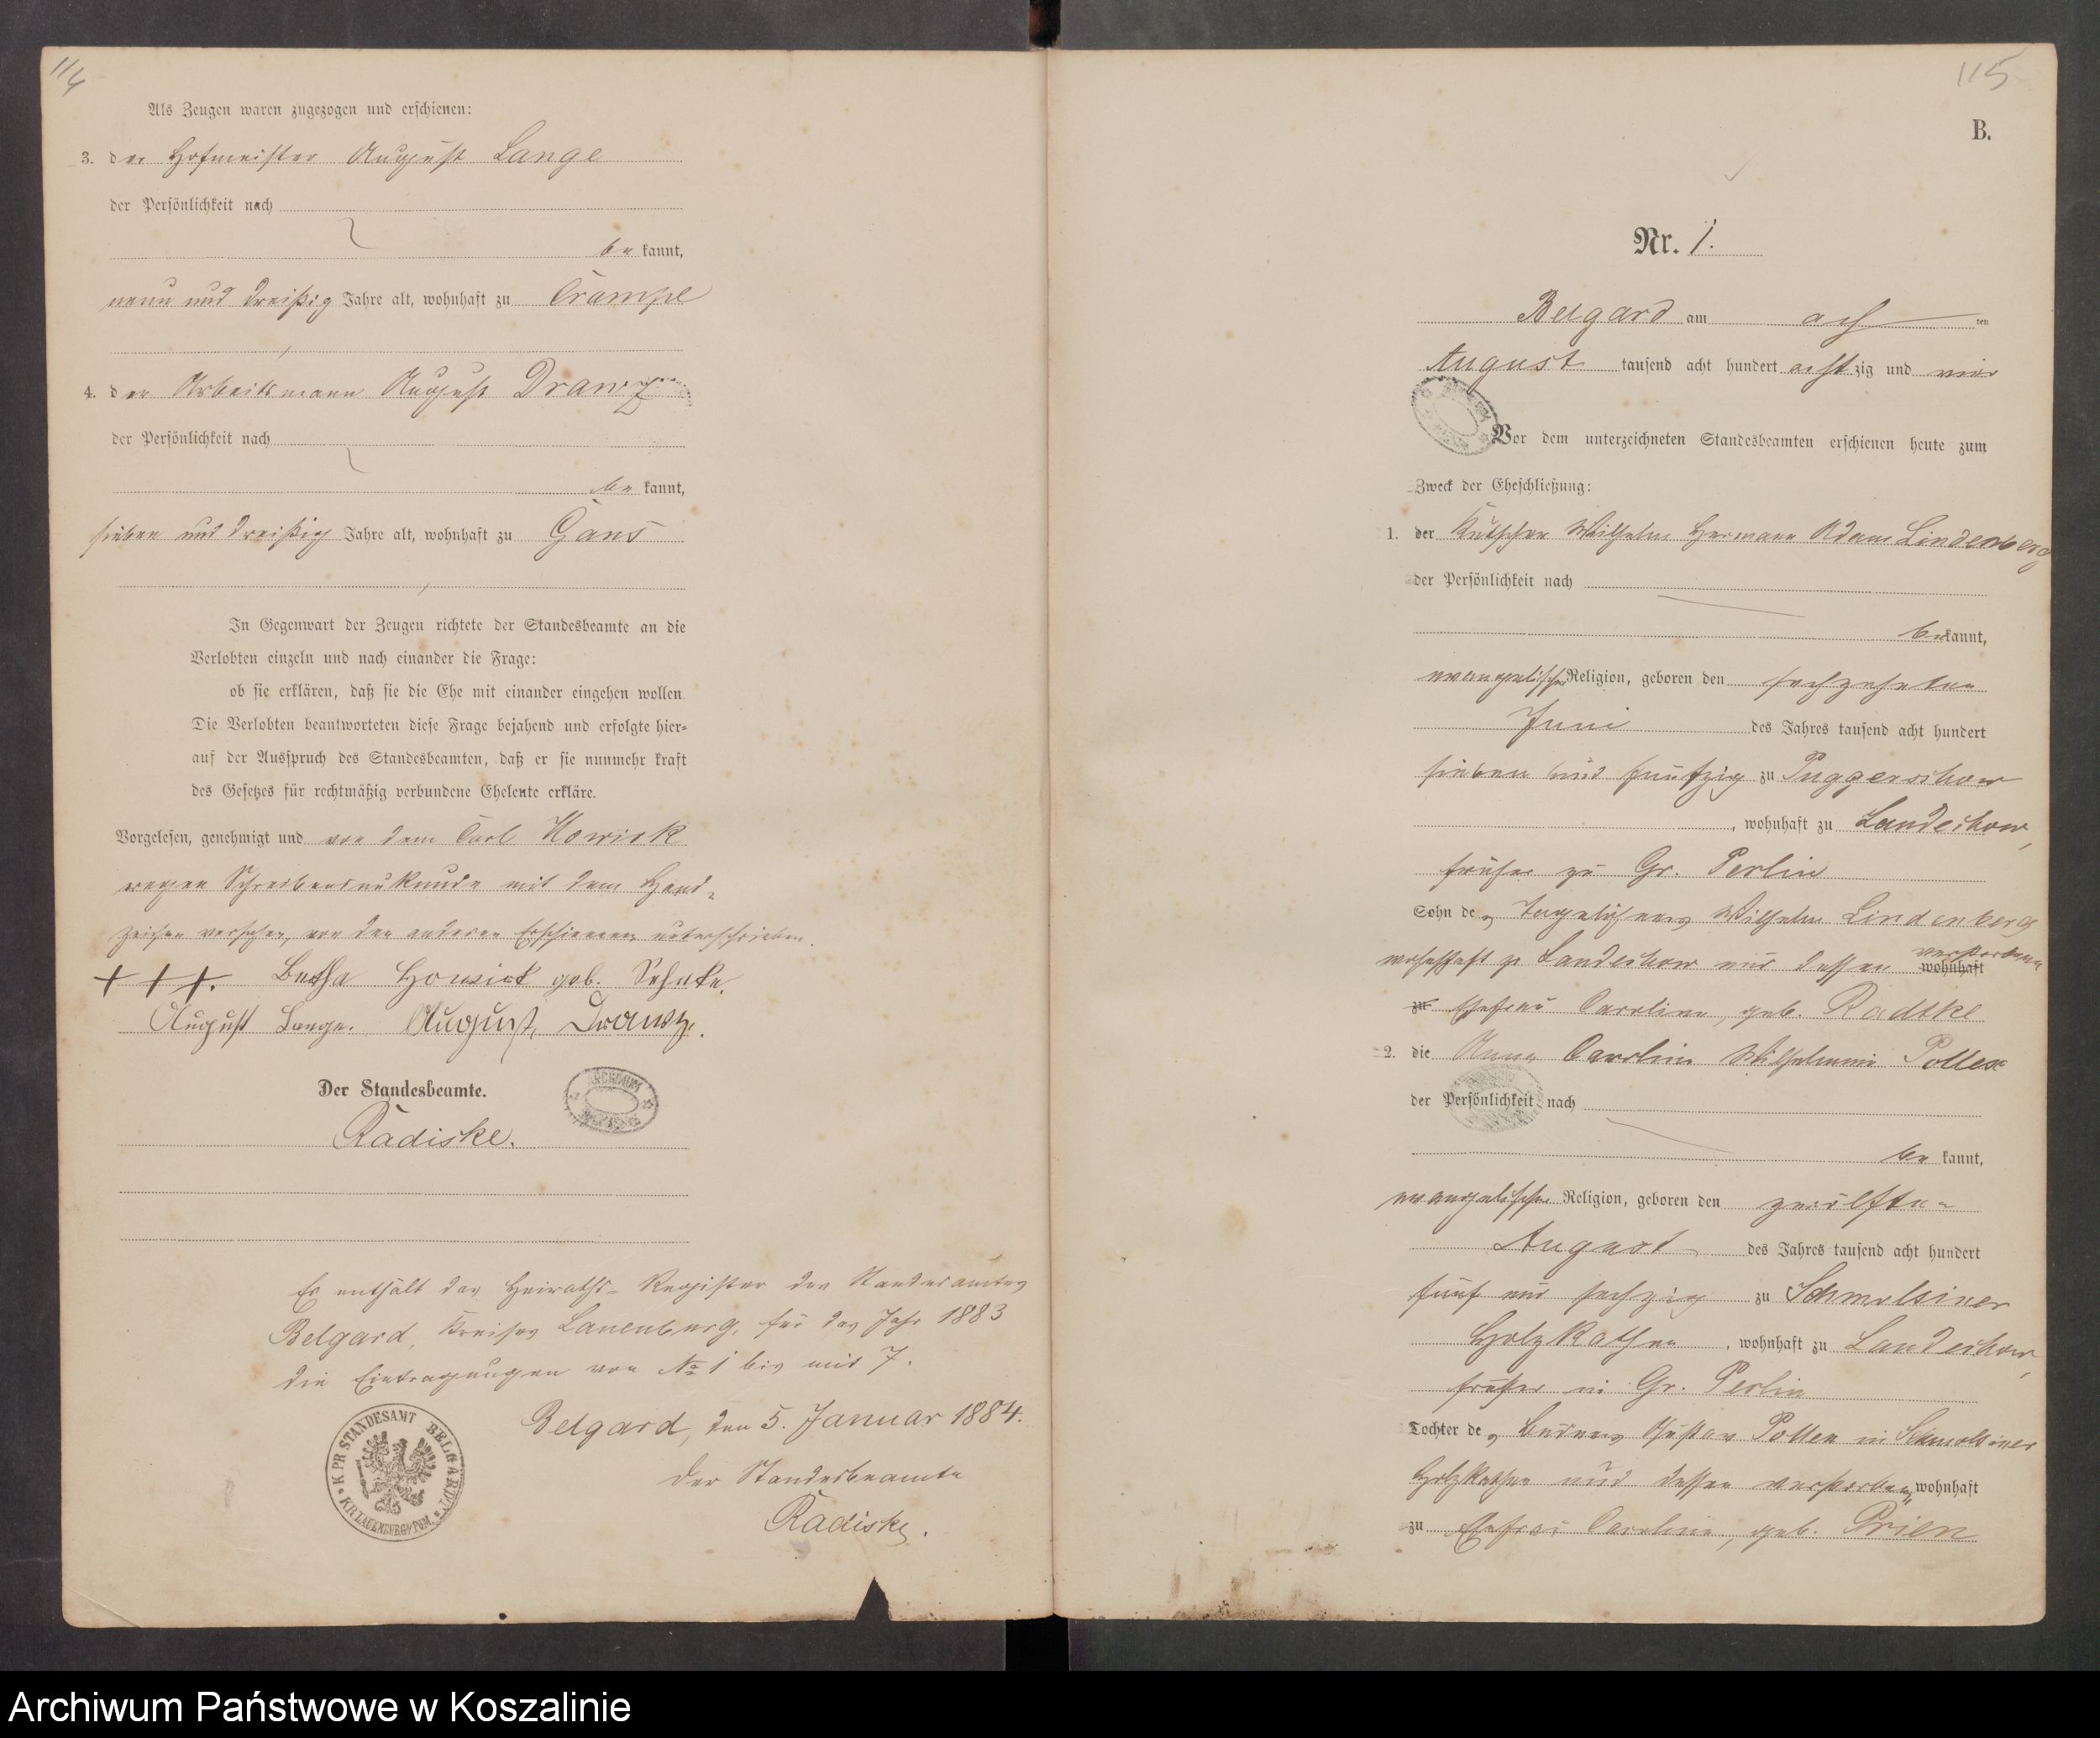 114
Als Zeugen waren zugezogen und erschienen:
3. der Hofmeister August Lange
der Persönlichkeit nach
be kannt,
neun und dreißig Jahre alt, wohnhaft zu Crampe
4. der Arbeitsmann August Drawz
der Persönlichkeit nach
be kannt,
sieben und dreißig Jahre alt, wohnhaft zu Gans
In Gegenwart der Zeugen richtete der Standesbeamte an die
Verlobten einzeln und nach einander die Frage:
ob sie erklären, daß sie die Ehe mit einander eingehen wollen
Die Verlobten beantworteten diese Frage bejahend und erfolgte hier-
auf der Ausspruch des Standesbeamten, daß er sie nunmehr kraft
des Gesetzes für rechtmäßig verbundene Eheleute erkläre.
Vorgelesen, genehmigt und von dem Carl
wegen Schreibensunkunde mit dem Hand-
zeichen versehen, von den anderen Erschienenen unterschrieben.
+ + +. geb.
August Lange. August Drawz.
Der Standesbeamte.
Radiske.
Es enthält das Heiraths-Register des Standesamtes
Belgard, Kreises Lauenburg, für das Jahr 1883
die Eintragungen von No 1 bis mit 7.
Belgard, den 5. Januar 1884.
Der Standesbeamte
Radiske.
K. PR. STANDESAMT BELGARD
KR. LAUENBURG i/ PGM.
115
B.
Nr. 1.
Belgard am ach ten
August tausend acht hundert achtzig und vier
Vor dem unterzeichneten Standesbeamten erschienen heute zum
Zweck der Eheschließung:
1. der Kutscher Wilhelm Hermann Adam Lindenberg
der Persönlichkeit nach
be kannt,
evangelischer Religion, geboren den sechzehnten
Juni des Jahres tausend acht hundert
sieben und fünfzig zu Puggerschow
, wohnhaft zu Landechow,
früher zu Gr. Perlin
Sohn des Tagelöhners Wilhelm Lindenberg
wohnhaft zu Landechow und dessen verstorbenen wohnhaft
zu Ehefrau Caroline, geb. Radtke
2. die Anna Caroline Wilhelmine
der Persönlichkeit nach
be kannt,
evangelischer Religion, geboren den zwölften
August des Jahres tausend acht hundert
fünf und sechzig zu Schmolsiner
Holzkathen, wohnhaft zu Landechow,
früher in Gr. Perlin
Tochter des Gustav in Schmolsiner
Holzkathen und dessen verstorbenen wohnhaft
zu Ehefrau Caroline, geb. Prien
Archiwum Państwowe w Koszalinie